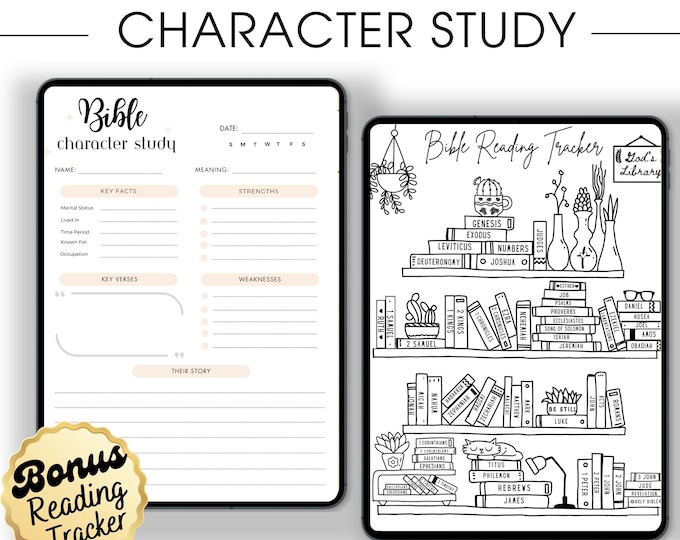 CHARACTER STUDY
Bible
character study
DATE:
S M T W T F S
NAME:
MEANING:
KEY FACTS
Marital Status
Lived in
Time Period
Known For
Occupation
STRENGTHS
KEY VERSES
WEAKNESSES
THEIR STORY
Bonus
Reading
Tracker
Bible Reading Tracker
God's
Library
GENESIS
EXODUS
LEVITICUS
NUMBERS
DEUTERONOMY
JOSHUA
JUDGES
RUTH
1 SAMUEL
2 SAMUEL
1 KINGS
2 KINGS
1 CHRONICLES
2 CHRONICLES
EZRA
NEHEMIAH
ESTHER
JOB
PSALMS
PROVERBS
ECCLESIASTES
SONG OF SOLOMON
ISAIAH
JEREMIAH
EZEKIEL
DANIEL
HOSEA
JOEL
AMOS
OBADIAH
JONAH
MICAH
NAHUM
HABAKKUK
ZEPHANIAH
HAGGAI
ZECHARIAH
MALACHI
MATTHEW
MARK
BE STILL
LUKE
JOHN
ACTS
ROMANS
1 CORINTHIANS
2 CORINTHIANS
GALATIANS
EPHESIANS
PHILIPPIANS
COLOSSIANS
1 TIMOTHY
TITUS
PHILEMON
HEBREWS
JAMES
1 PETER
2 PETER
1 JOHN
2 JOHN
3 JOHN
JUDE
REVELATION
HOLY BIBLE